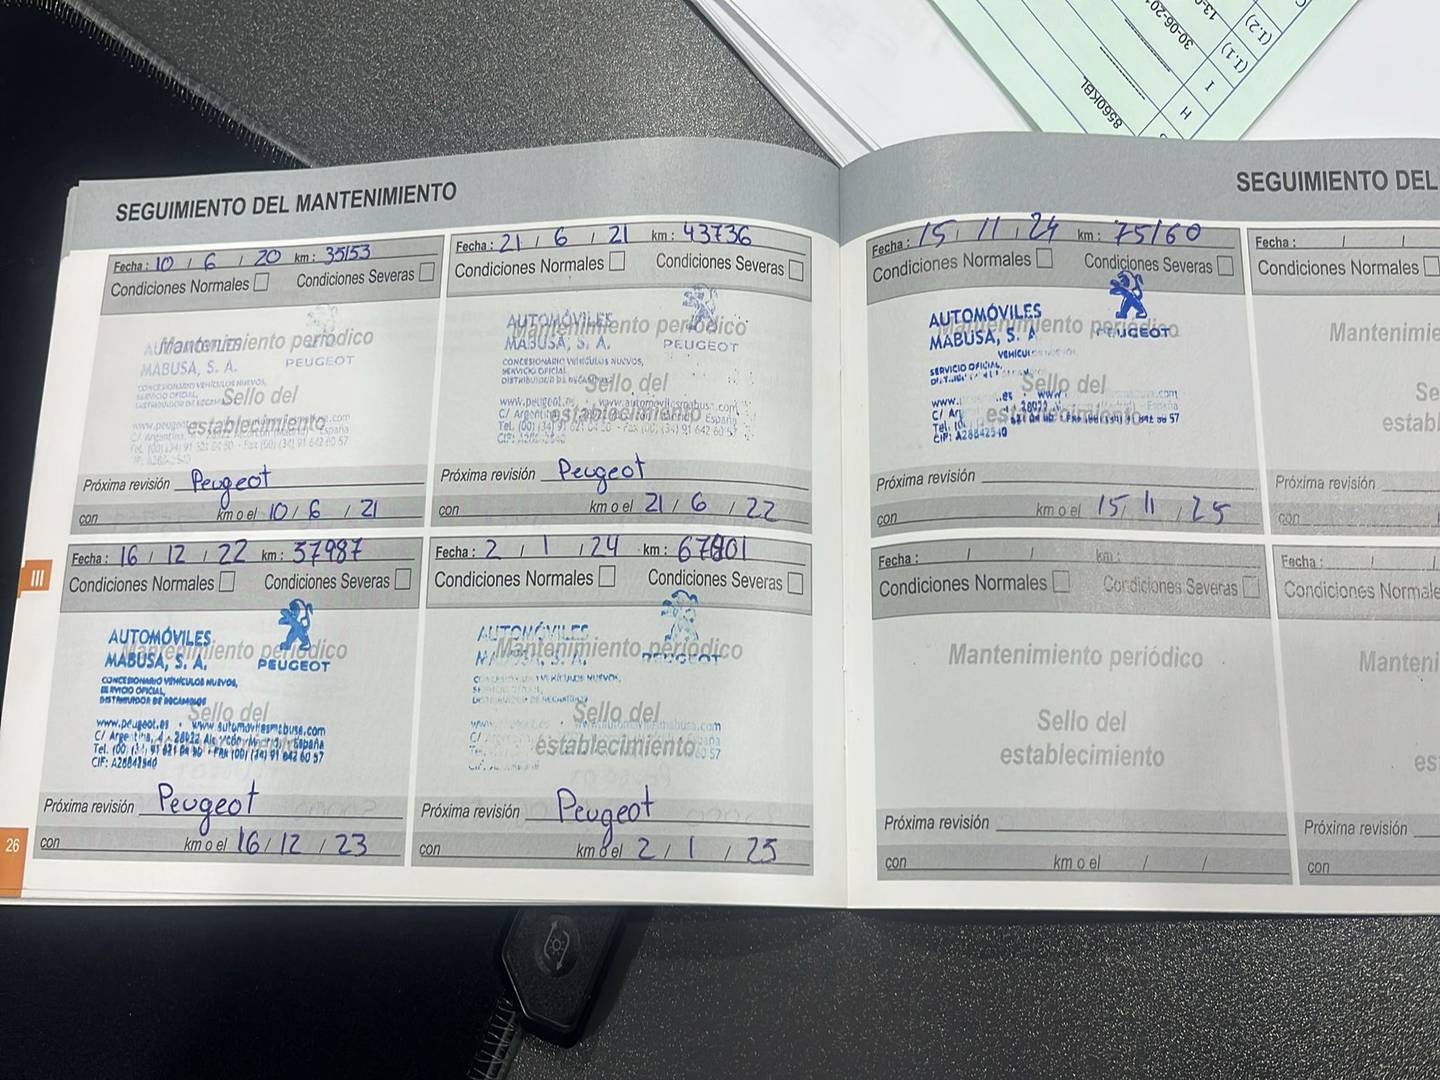 C
13-0
(I.2)
30-06-20
(I.1)
I
8560KBL
H
SEGUIMIENTO DEL MANTENIMIENTO
Fecha: 10 / 6 / 20 km: 35153
Condiciones Normales Condiciones Severas
Mantenimiento periódico
AUTOMÓVILES
MABUSA, S. A.
PEUGEOT
CONCESIONARIO VEHÍCULOS NUEVOS,
SERVICIO OFICIAL,
Sello del
establecimiento
Próxima revisión Peugeot
con km o el 10 / 6 / 21
Fecha: 21 / 6 / 21 km: 43736
Condiciones Normales Condiciones Severas
Mantenimiento periódico
AUTOMÓVILES
MABUSA, S. A.
PEUGEOT
CONCESIONARIO VEHÍCULOS NUEVOS,
SERVICIO OFICIAL
DISTRIBUIDOR DE RECAMBIOS
Sello del
www.peugeot.es - www.automovilesmabusa.com
establecimiento
C/ Argentina España
Próxima revisión Peugeot
con km o el 21 / 6 / 22
Fecha: 16 / 12 / 22 km: 57987
Condiciones Normales Condiciones Severas
Mantenimiento periódico
AUTOMÓVILES
MABUSA, S. A.
PEUGEOT
CONCESIONARIO VEHÍCULOS NUEVOS,
SERVICIO OFICIAL,
DISTRIBUIDOR DE RECAMBIOS
Sello del
www.peugeot.es - www.automovilesmabusa.com
C/ Argentina, 4 - 28922 Alcorcón España
establecimiento
CIF: A28842540
Próxima revisión Peugeot
con km o el 16 / 12 / 23
Fecha: 2 / 1 / 24 km: 67801
Condiciones Normales Condiciones Severas
Mantenimiento periódico
AUTOMÓVILES
PEUGEOT
Sello del
establecimiento
Próxima revisión Peugeot
con km o el 2 / 1 / 25
III
26
SEGUIMIENTO DEL
Fecha: 15 / 11 / 24 km: 75160
Condiciones Normales Condiciones Severas
Mantenimiento periódico
AUTOMÓVILES
MABUSA, S. A.
PEUGEOT
SERVICIO OFICIAL,
Sello del
establecimiento
CIF: A28842540
Próxima revisión
con km o el 15 / 11 / 25
Fecha: / /
Condiciones Normales
Mantenimie
Se
establ
Próxima revisión
con
Fecha: / / km:
Condiciones Normales Condiciones Severas
Mantenimiento periódico
Sello del
establecimiento
Próxima revisión
con km o el / /
Fecha: / /
Condiciones Normale
Manteni
es
Próxima revisión
con